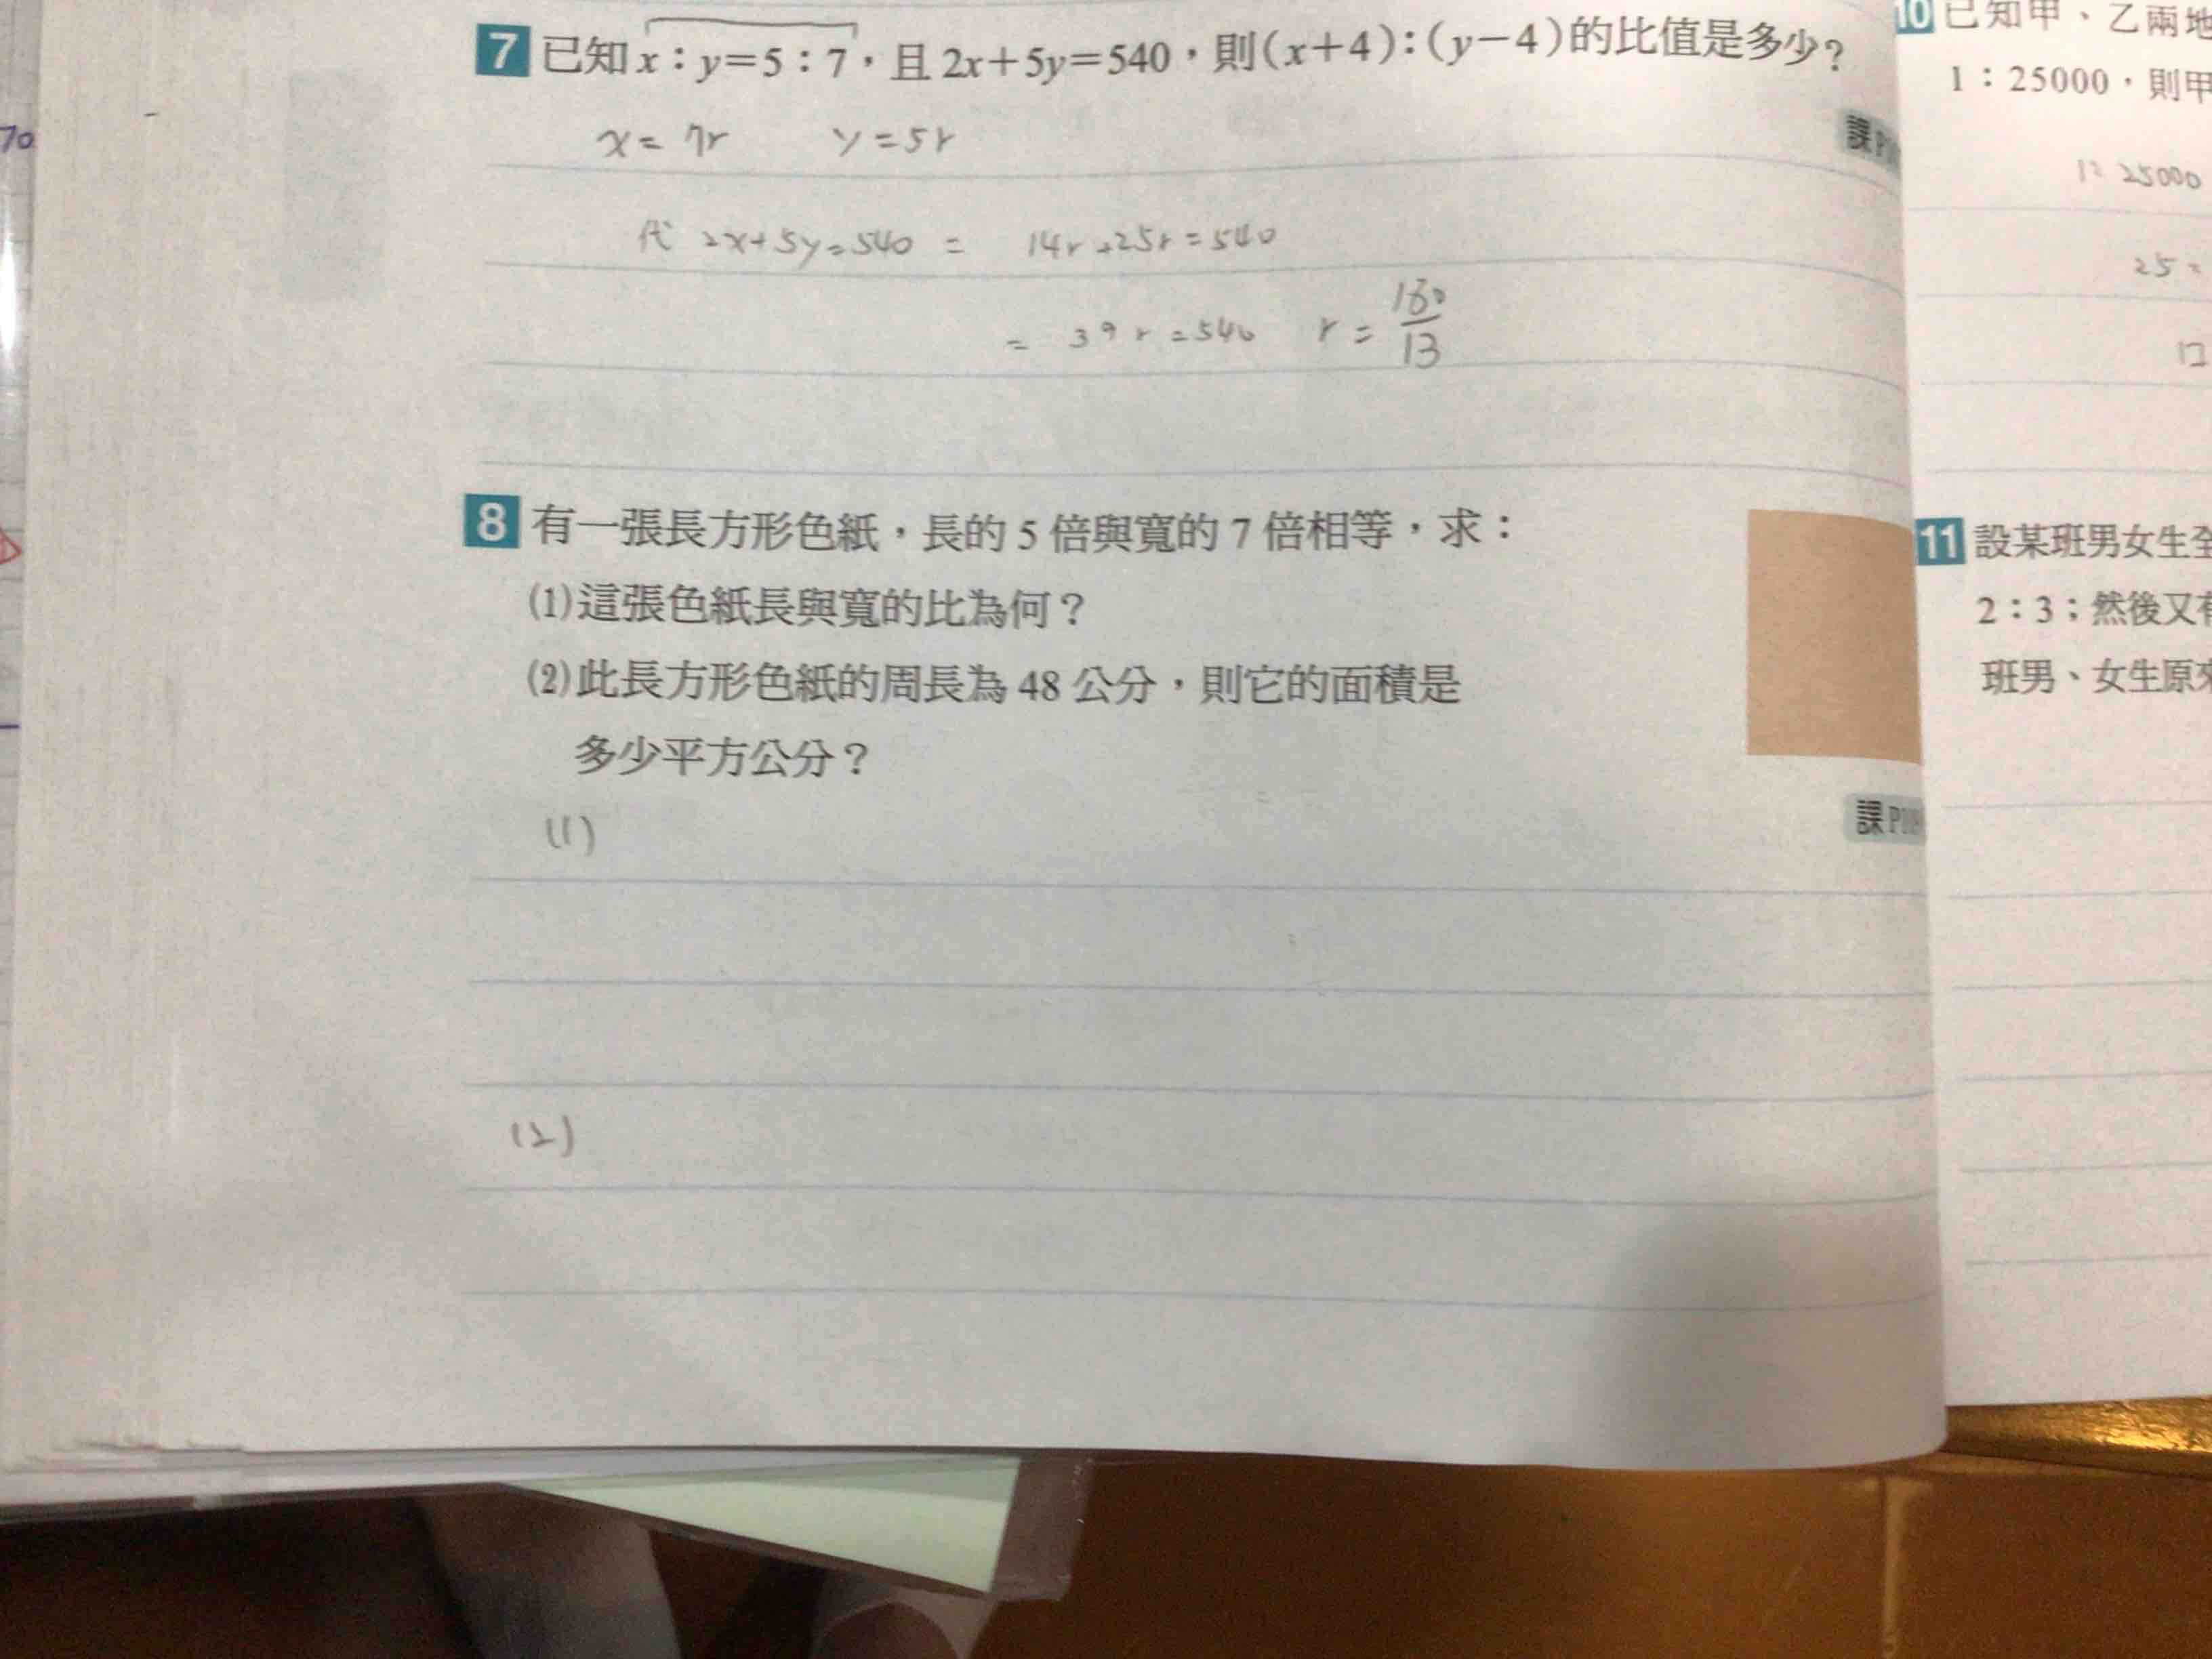 70
7 已知 x：y＝5：7，且 2x＋5y＝540，則(x＋4)：(y－4)的比值是多少？
x = 7r y = 5r
代 2x+5y=540 = 14r+25r=540
= 39r=540 r = 180/13
8 有一張長方形色紙，長的 5 倍與寬的 7 倍相等，求：
(1)這張色紙長與寬的比為何？
(2)此長方形色紙的周長為 48 公分，則它的面積是
多少平方公分？
課P109
(1)
(2)
10 已知甲、乙兩地
1：25000，則甲
1: 25000
25 =
11 設某班男女生全
2：3；然後又有
班男、女生原來